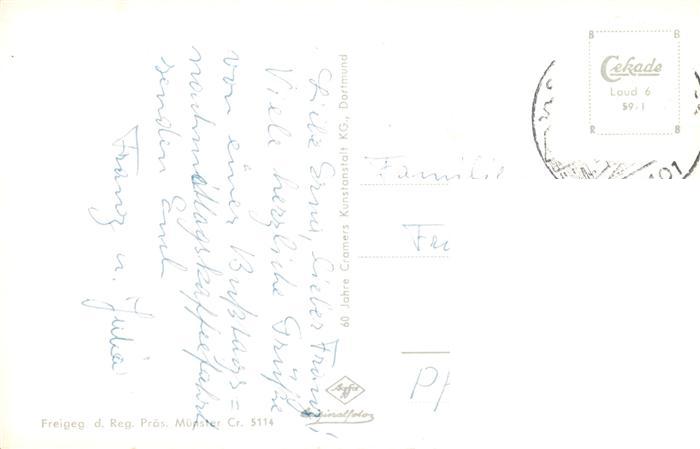 Liebe Erna, lieber Franz!
Viele herzliche Grüße
von einer Bußtags=
nachmittagskaffeefahrt
senden Euch
Franz u. Julia
Familie
60 Jahre Cramers Kunstanstalt KG., Dortmund
Agfa
Originalfoto
Freigeg d. Reg. Präs. Münster Cr. 5114
B B
Cekade
Laud 6
59.1
R B